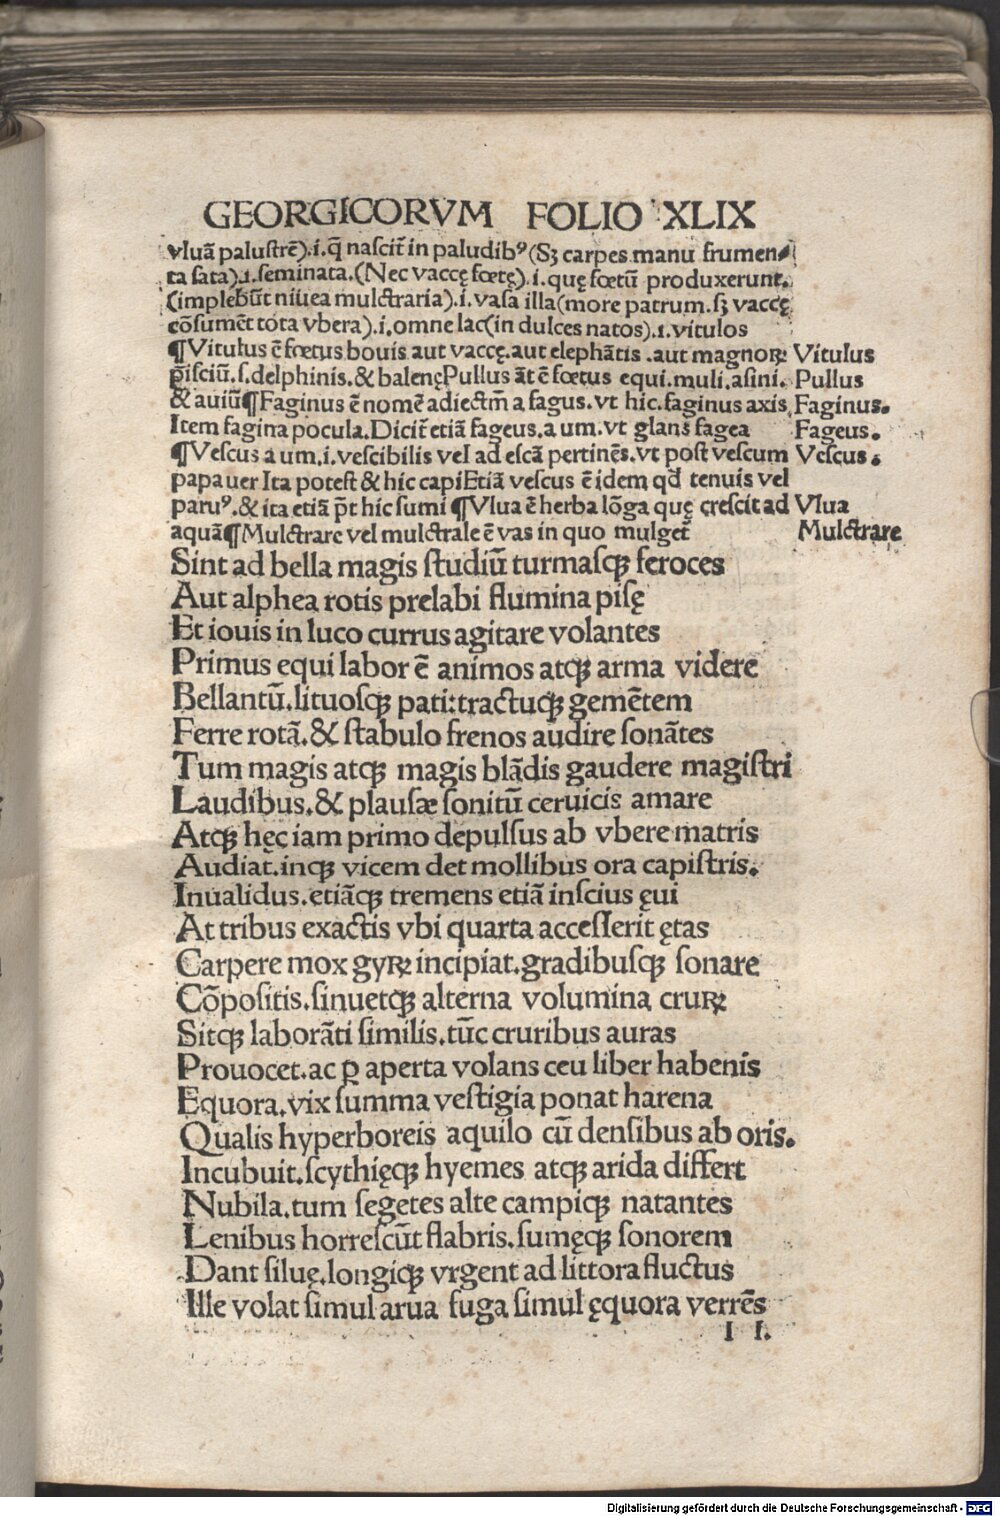 GEORGICORVM FOLIO XLIX
vluã paluſtrẽ).i.q̃ naſcit̃ in paludibꝰ (Sꝫ carpes manu frumen⸗
ta ſata).i.ſeminata.(Nec vaccę fœtę).i.quę fœtũ produxerunt.
(implebũt niuea mulctraria).i.vaſa illa(more patrum.ſꝫ vaccę
cõſumẽt tota vbera).i.omne lac(in dulces natos).i.vitulos
¶Vitulus ẽ fœtus bouis aut vaccę.aut elephãtis .aut magnoꝝ Vitulus
p̃iſciũ.ſ.delphinis.& balenęPullus ãt ẽ fœtus equi.muli.aſini. Pullus
& auiũ¶Faginus ẽ nomẽ adiectm̃ a fagus.vt hic.faginus axis Faginus.
Item fagina pocula.Dicit̃ etiã fageus.a um.vt glans fagea Fageus.
¶Veſcus a um.i.veſcibilis vel ad eſcã pertinẽs.vt poſt veſcum Veſcus.
papauer Ita poteſt & hic capiEtiã veſcus ẽ idem qd̃ tenuis vel
paruꝰ.& ita etiã p̃t hic ſumi ¶Vlua ẽ herba lõga quę creſcit ad Vlua
aquã¶Mulctrare vel mulctrale ẽ vas in quo mulget̃ Mulctrare
Sint ad bella magis ſtudiũ turmaſqꝫ feroces
Aut alphea rotis prelabi flumina piſę
Et iouis in luco currus agitare volantes
Primus equi labor ẽ animos atqꝫ arma videre
Bellantũ.lituoſqꝫ pati:tractuqꝫ gemẽtem
Ferre rotã.& ſtabulo frenos audire ſonãtes
Tum magis atqꝫ magis blãdis gaudere magiſtri
Laudibus.& plauſæ ſonitũ ceruicis amare
Atqꝫ hęc iam primo depulſus ab vbere matris
Audiat.inqꝫ vicem det mollibus ora capiſtris.
Inualidus.etiãqꝫ tremens etiã inſcius ęui
At tribus exactis vbi quarta acceſſerit ętas
Carpere mox gyꝝ incipiat.gradibuſqꝫ ſonare
Cõpoſitis.ſinuetqꝫ alterna volumina cruꝝ
Sitqꝫ laborãti ſimilis.tũc cruribus auras
Prouocet.ac ꝑ aperta volans ceu liber habenis
Equora.vix ſumma veſtigia ponat harena
Qualis hyperboreis aquilo cũ denſibus ab oris.
Incubuit.ſcythięqꝫ hyemes atqꝫ arida differt
Nubila.tum ſegetes alte campiqꝫ natantes
Lenibus horreſcũt flabris.ſumęqꝫ ſonorem
Dant ſiluę.longiqꝫ vrgent ad littora fluctus
Ille volat ſimul arua fuga ſimul ęquora verrẽs
I I.
Digitalisierung gefördert durch die Deutsche Forschungsgemeinschaft - DFG